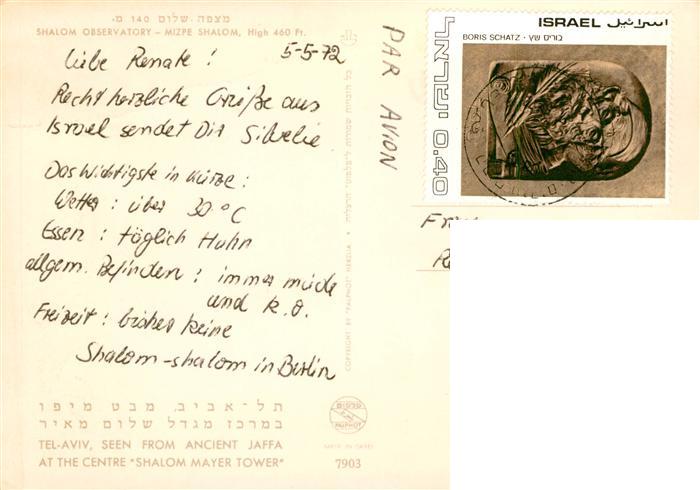 מצפה שלום 140 מ׳
SHALOM OBSERVATORY – MIZPE SHALOM, High 460 Ft.
5-5-72
Liebe Renate !
Recht herzliche Grüße aus
Israel sendet Dir Sibylle
Das Wichtigste in Kürze :
Wetter : über 30 °C
Essen : täglich Huhn
allgem. Befinden : immer müde
und k.o.
Freizeit : bisher keine
Shalom-shalom in Berlin
תל-אביב, מבט מיפו
במרכז מגדל שלום מאיר
TEL-AVIV, SEEN FROM ANCIENT JAFFA
AT THE CENTRE "SHALOM MAYER TOWER"
פלפוט
PALPHOT
MADE IN ISRAEL
7903
COPYRIGHT BY "PALPHOT" HERZLIA
כל הזכויות שמורות ל"פלפוט" הרצליה
PAR AVION
ISRAEL اسرائيل
BORIS SCHATZ · בוריס שץ
ישראל 0.40